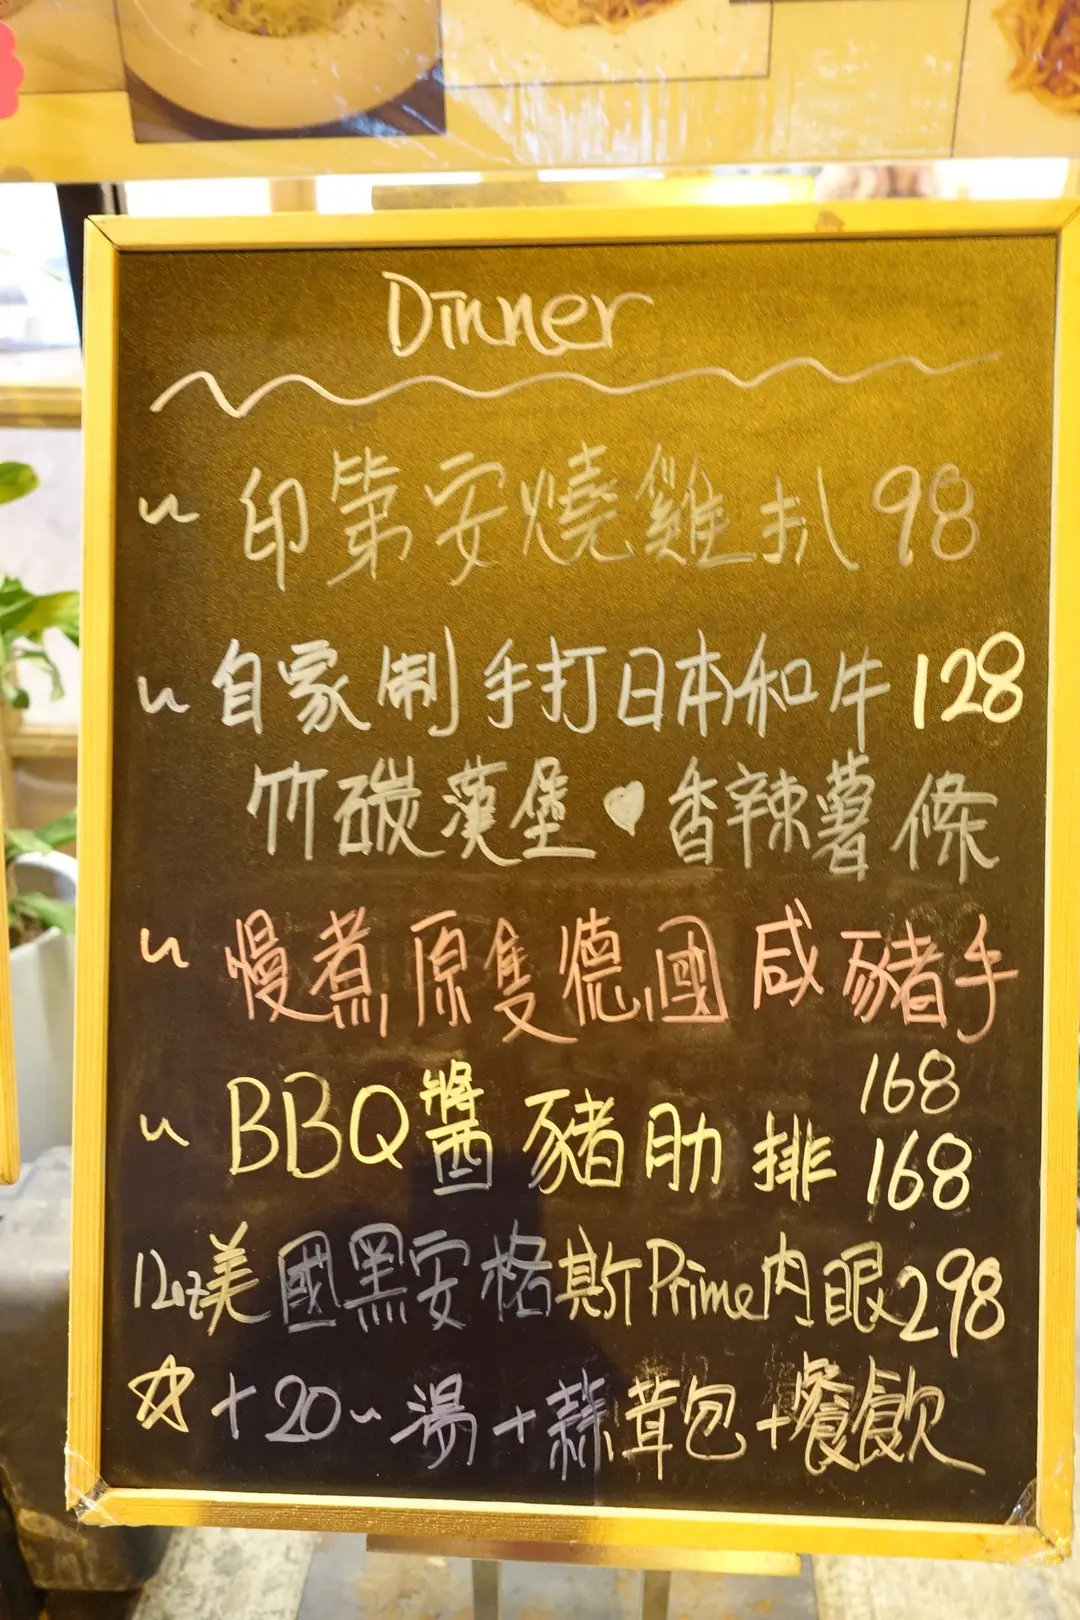 Dinner
~ 印第安燒雞扒 98
~ 自家制手打日本和牛 128
竹碳漢堡♥香辣薯條
~ 慢煮原隻德國咸豬手
168
~ BBQ醬豬肋排 168
12oz美國黑安格斯Prime肉眼298
☆ +20~湯+蒜茸包+餐飲